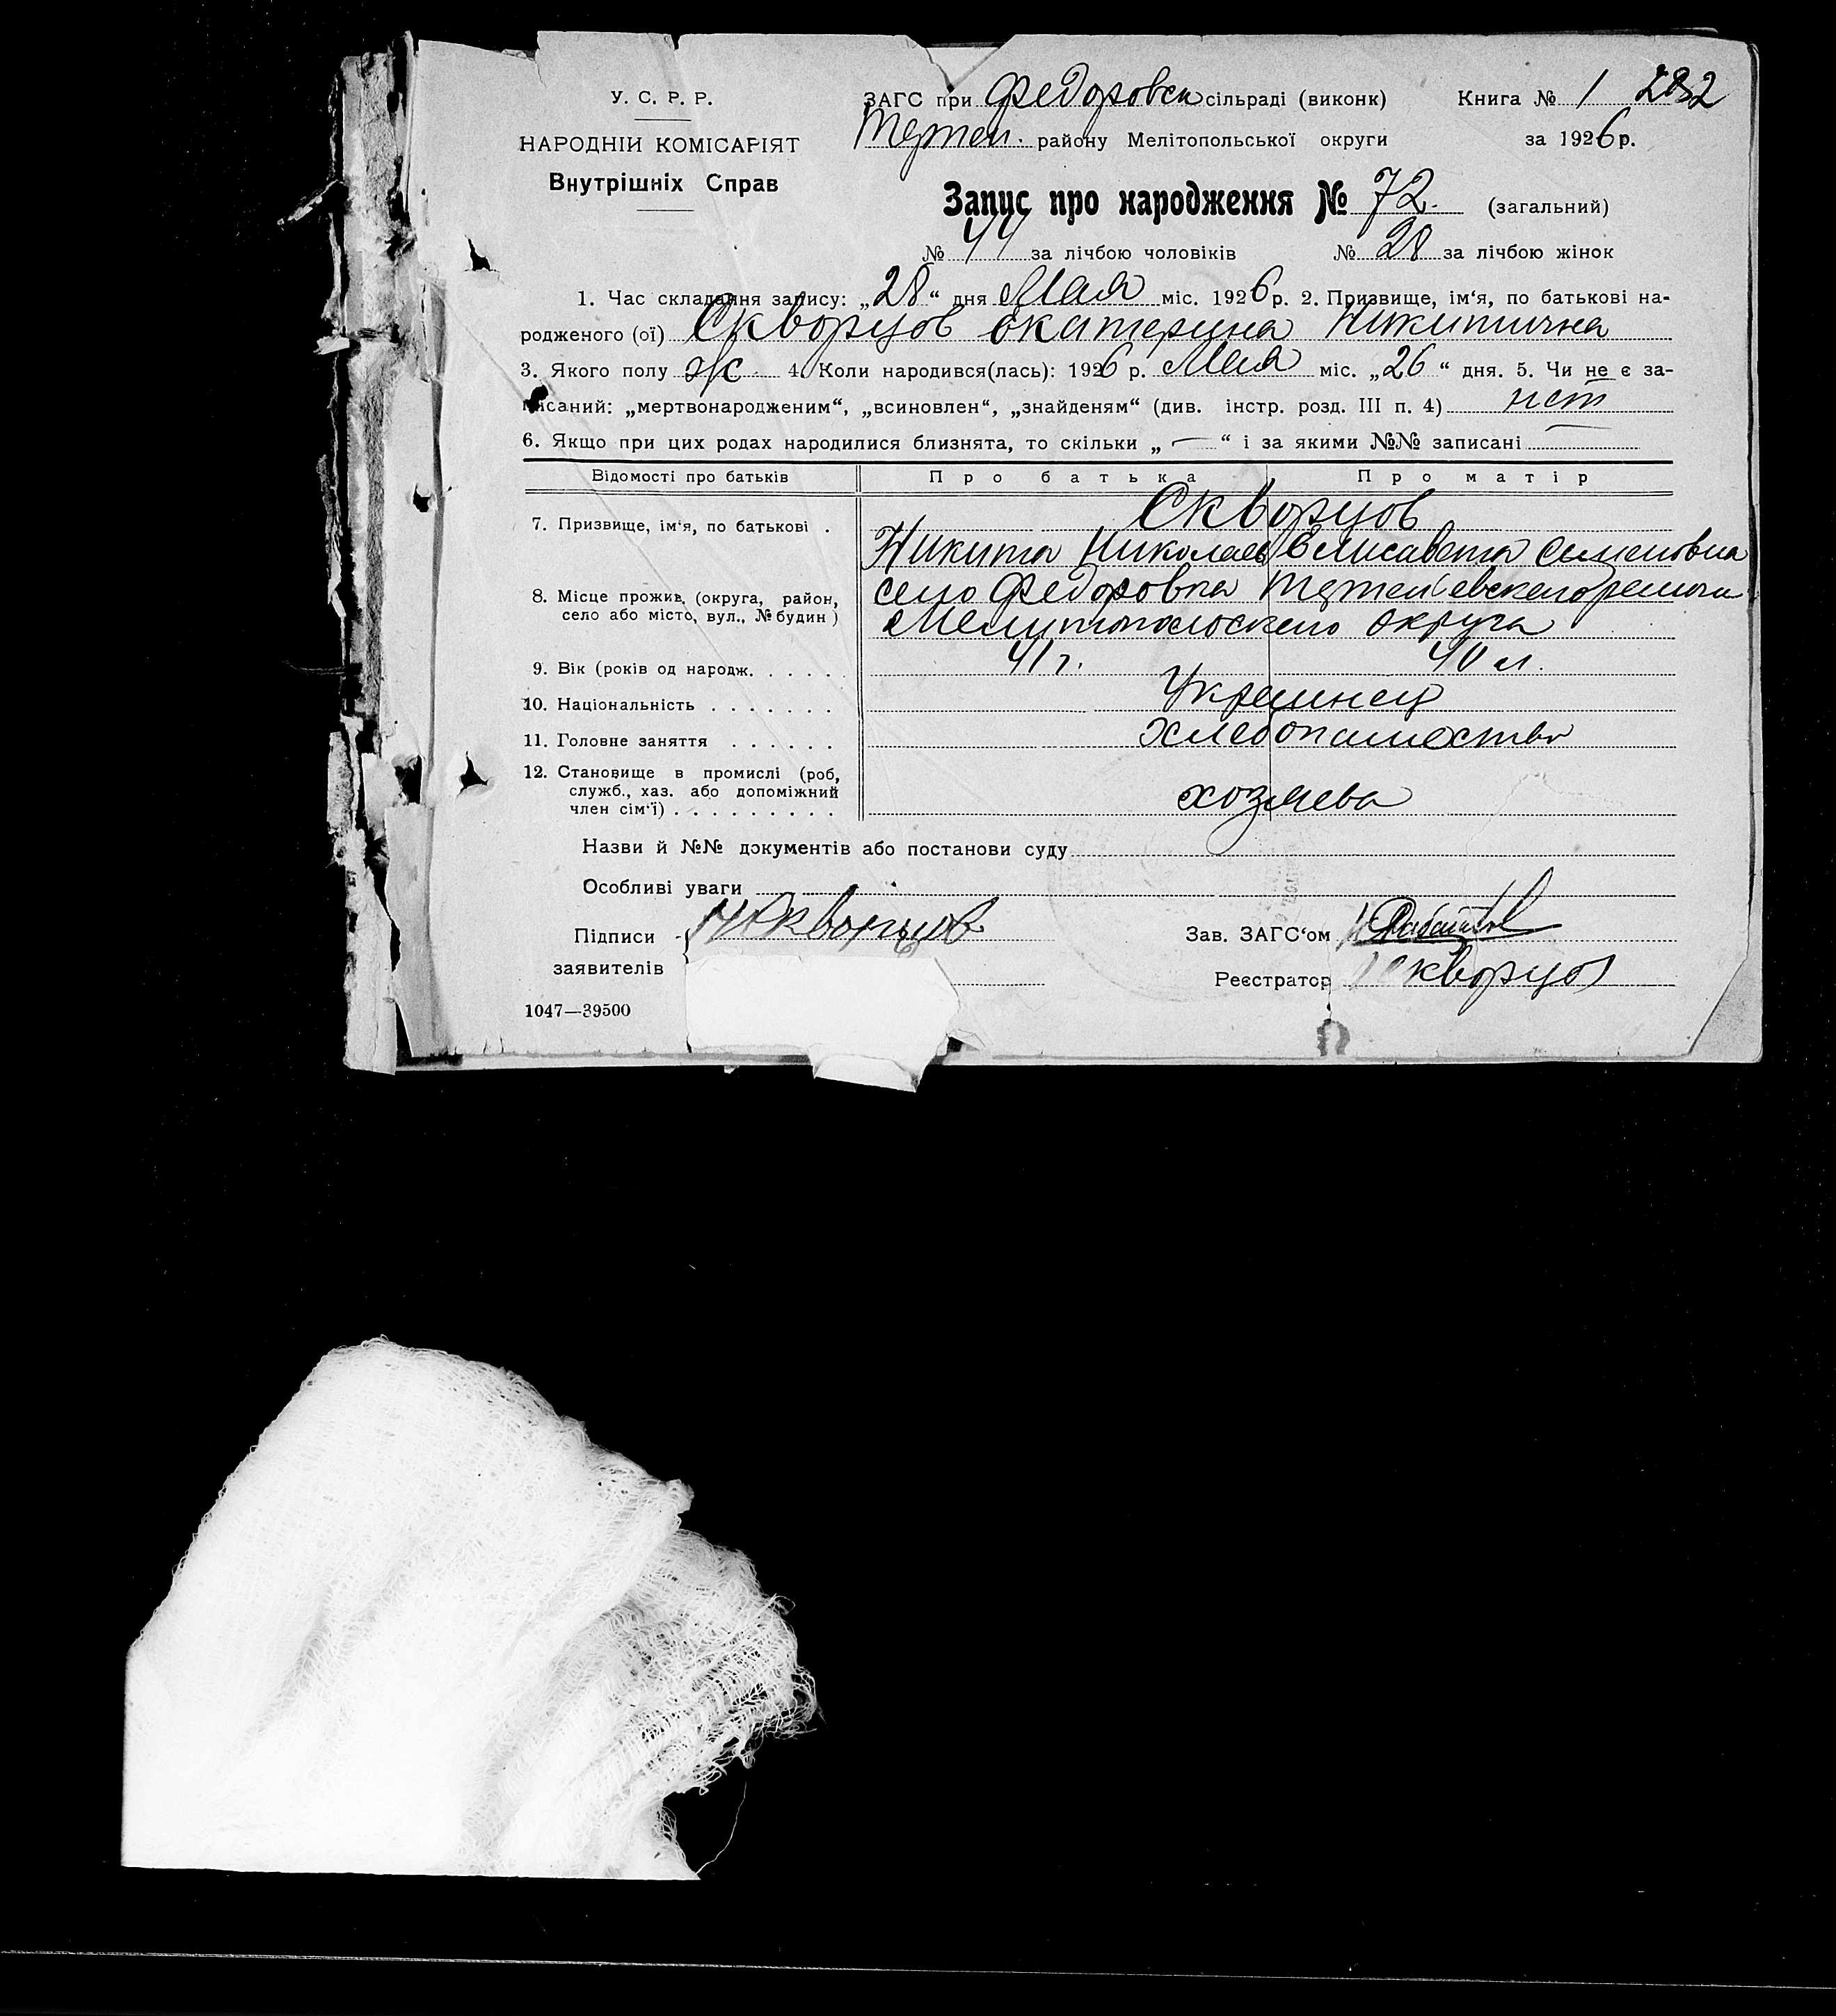 У. С. Р. Р.
НАРОДНІЙ КОМІСАРІЯТ
Внутрішніх Справ
ЗАГС при Федоровск сільраді (виконк) Книга № 1 282
району Мелітопольської округи за 1926 р.
Запис про народження № 72. (загальний)
№ 44 за лічбою чоловіків № 28 за лічбою жінок
1. Час складання запису: „28“ дня Мая міс. 1926 р. 2. Призвище, ім‘я, по батькові на-
родженого (ої) Скворцов Екатерина Никитична
3. Якого полу ж. 4. Коли народився(лась): 1926 р. Мая міс. „26“ дня. 5. Чи не є за-
писаний: „мертвонародженим“, „всиновлен“, „знайденям“ (див. інстр. розд. III п. 4) нет
6. Якщо при цих родах народилися близнята, то скільки „—“ і за якими №№ записані
Відомості про батьків Про батька Про матір
7. Призвище, ім‘я, по батькові . Скворцов
Никита Николаев Елисавета Семеновна
8. Місце прожив. (округа, район, село Федоровка
село або місто, вул., № будин) Мелитопольского округа
9. Вік (років од народж. . . . . . 41 г. 40 л.
10. Національність . . . . . . . Украинец
11. Головне заняття . . . . . . Хлебопашество
12. Становище в промислі (роб,
служб., хаз. або допоміжний
член сім‘ї) . . . . . . . . . хозяева
Назви й №№ документів або постанови суду
Особливі уваги
Підписи Н Скворцов Зав. ЗАГС‘ом
заявителів Реєстратор Скворцов
1047—39500